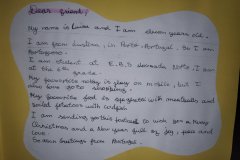 Dear friend,
My name is Luisa and I am eleven years old.
I am from Lustosa, in Porto, Portugal. So I am
Portuguese.
I am student at E.B.S Lousada Norte, I am
at the 6th grade.
My favourite hobby is play on mobile, but I
also love goto shopping.
My favourite food is spaghetti with meatballs and
boiled potatoes with codfish.
I am sending you this postcard to wish you a Merry
Christmas and a New year full of joy, peace and
Love.
Season Greetings from Portugal.